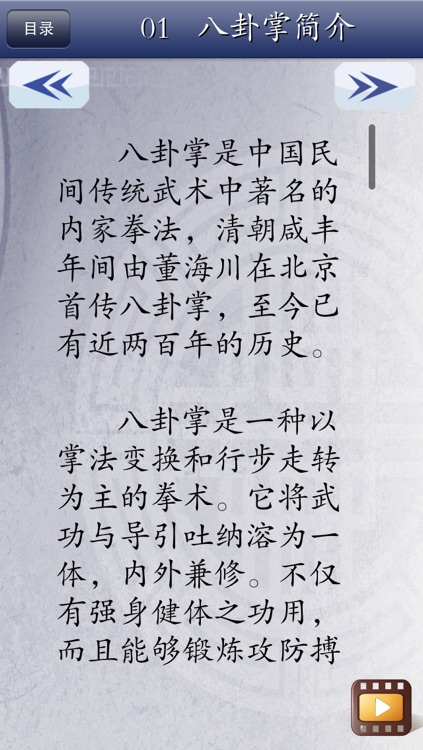 目录
01 八卦掌简介
八卦掌是中国民
间传统武术中著名的
内家拳法，清朝咸丰
年间由董海川在北京
首传八卦掌，至今已
有近两百年的历史。
八卦掌是一种以
掌法变换和行步走转
为主的拳术。它将武
功与导引吐纳溶为一
体，内外兼修。不仅
有强身健体之功用，
而且能够锻炼攻防搏